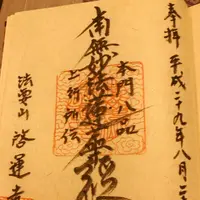 奉拝
平成二十九年八月二
本門八品
南無妙法蓮華経
上行所伝
法要山
啓運寺